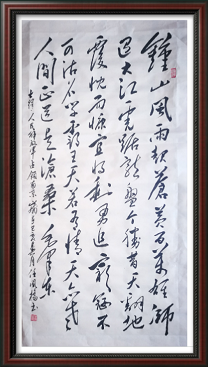 鐘山風雨起蒼黃百萬雄師
過大江虎踞龍盤今勝昔天翻地
覆慨而慷宜將剩勇追窮寇不
可沽名學霸王天若有情天亦老
人間正道是滄桑 毛澤東
七律人民解放軍占領南京